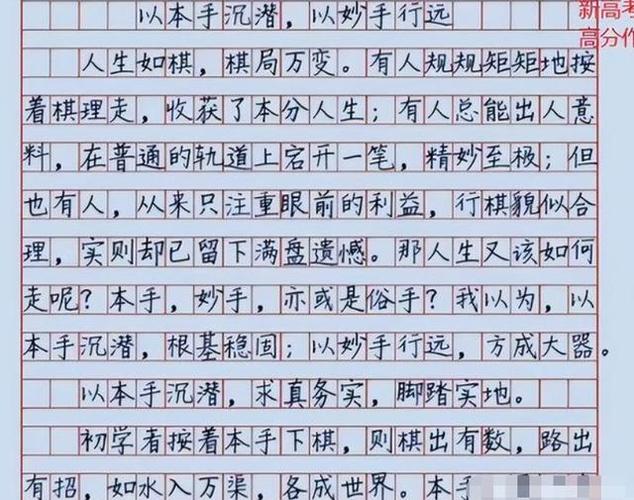 以本手沉潜，以妙手行远
新高考
高分作
人生如棋，棋局万变。有人规规矩矩地按
着棋理走，收获了本分人生；有人总能出人意
料，在普通的轨道上宕开一笔，精妙至极；但
也有人，从来只注重眼前的利益，行棋貌似合
理，实则却已留下满盘遗憾。那人生又该如何
走呢？本手，妙手，亦或是俗手？我以为，以
本手沉潜，根基稳固；以妙手行远，方成大器。
以本手沉潜，求真务实，脚踏实地。
初学者按着本手下棋，则棋出有数，路出
有招，如水入万渠，各成世界。本手